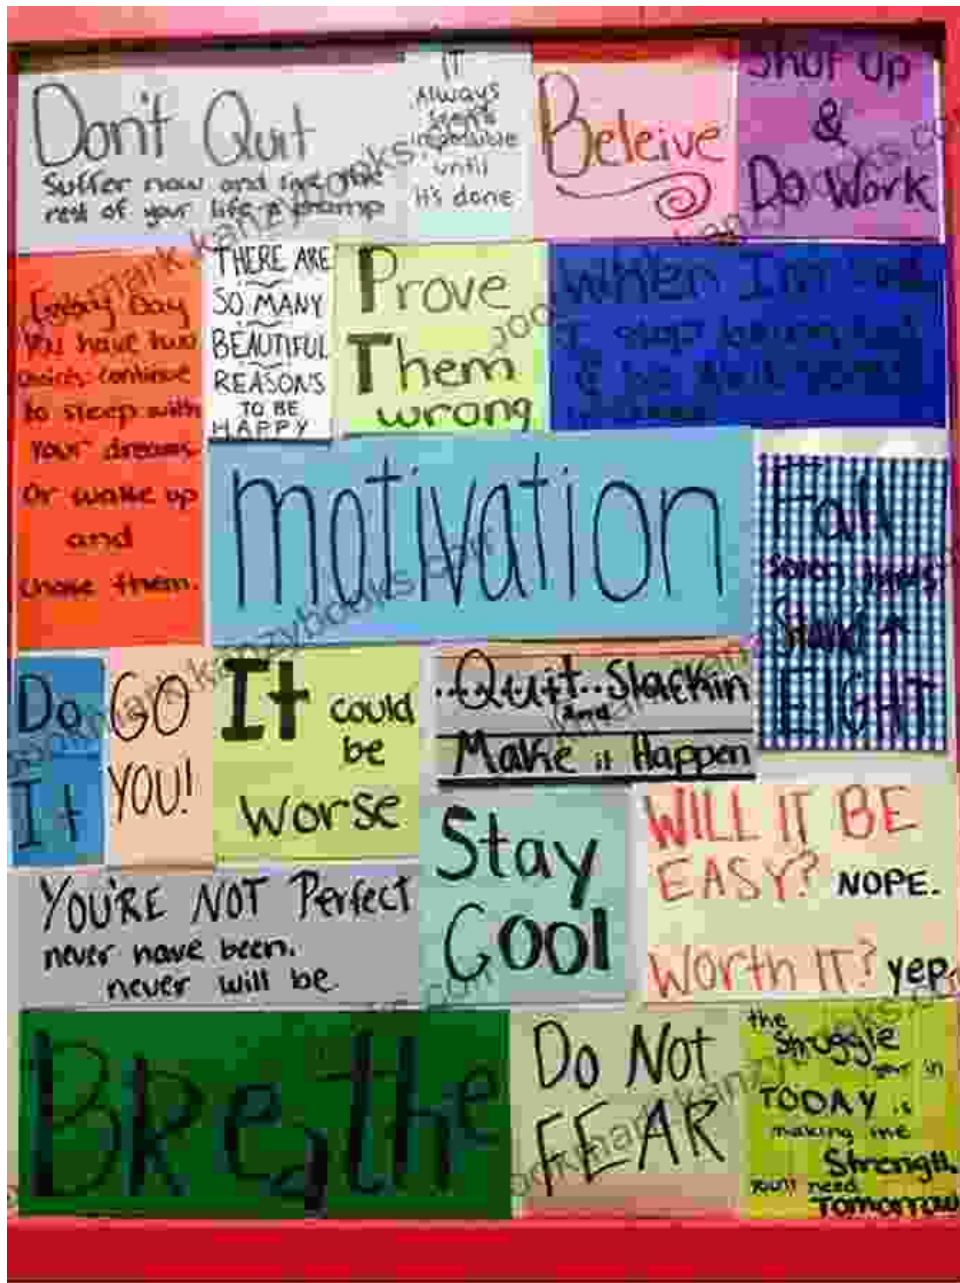 Don't Quit
Suffer now and
rest of your life a champ
IT
Always
until
it's done
Beleive
Shut up
&
Do Work
Every Day
You have two
continue
to sleep with
Your dreams
Or wake up
and
chase them.
THERE ARE
SO MANY
BEAUTIFUL
REASONS
TO BE
HAPPY
Prove
Them
wrong
When I'm
I stop being
motivation
Fall
seven times
Stand ↑
EIGHT
Do
It
GO
YOU!
It could
be
worse
..Quit..Slackin
and
Make it Happen
Stay
Cool
WILL IT BE
EASY? NOPE.
Worth IT? yep.
YOU'RE NOT Perfect
never have been.
never will be
Breathe
Do Not
FEAR
the
Struggle
your in
TODAY is
making the
Strength
you'll need
Tomorrow